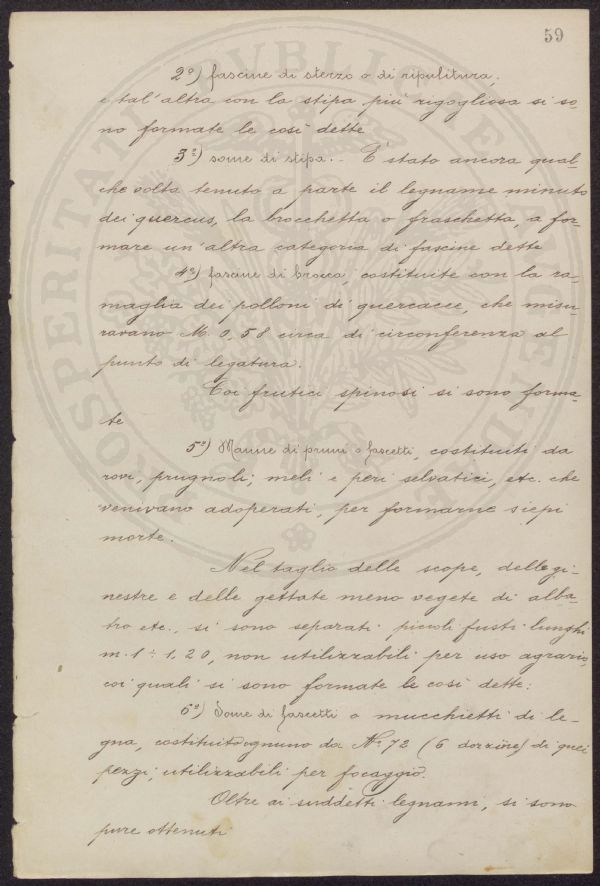 59
2º) fascine di sterzo o di ripulitura,
e tal'altra con la stipa più rigogliosa si so-
no formate le così dette
3º) some di stipa. - È stato ancora qual-
che volta tenuto a parte il legname minuto
dei quercus, la brocchetta o fraschetta, a for-
mare un'altra categoria di fascine dette
4º) fascine di brocca, costituite con la ra-
maglia dei polloni di quercacee, che misu-
ravano M. 0,58 circa di circonferenza al
punto di legatura.
Coi frutici spinosi si sono forma-
te
5º) Manne di pruni o fascetti, costituiti da
rovi, prugnoli, meli e peri selvatici, etc. che
venivano adoperati, per formarne siepi
morte.
Nel taglio delle scope, delle gi-
nestre e delle gettate meno vegete di alba-
tro etc., si sono separati piccoli fusti lunghi
m. 1 ÷ 1,20, non utilizzabili per uso agrario,
coi quali si sono formate le così dette:
6º) Some di fascetti o mucchietti di le-
gna, costituito ognuno da Nº 72 (6 dozzine) di quei
pezzi, utilizzabili per focaggio.
Oltre ai suddetti legnami, si sono
pure ottenuti
PUBLICAE
PROSPERITATI
AUGENDAE